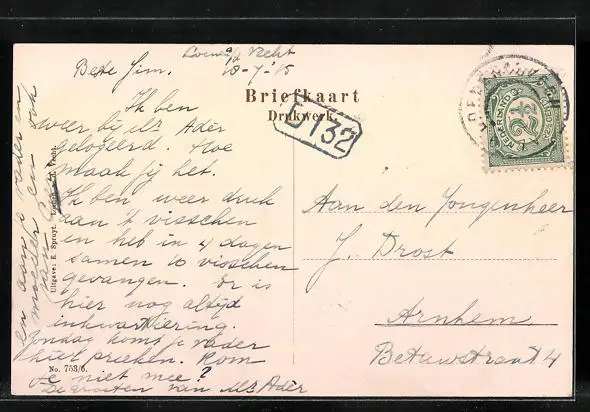 Loenen a/d Vecht
18-7-'15
Beste Jim.
Ik ben
weer bij Mr Ader
gelogeerd. Hoe
maak jij het.
Ik ben weer druk
aan 't visschen
en heb in 4 dagen
samen 10 visschen
gevangen. Er is
hier nog altijd
inkwartiering.
Zondag komt je vader
hier preeken. Kom
je niet mee?
De groeten van Mr Ader
en aan je vader en
moeder en ook
Briefkaart
Drukwerk.
GT32
NEDERLAND
2½
Aan den Jongenheer
J. Drost
Arnhem.
Betuwstraat 4
Uitgave: E. Spruyt, Loenen a. d. Vecht.
No. 753/6.